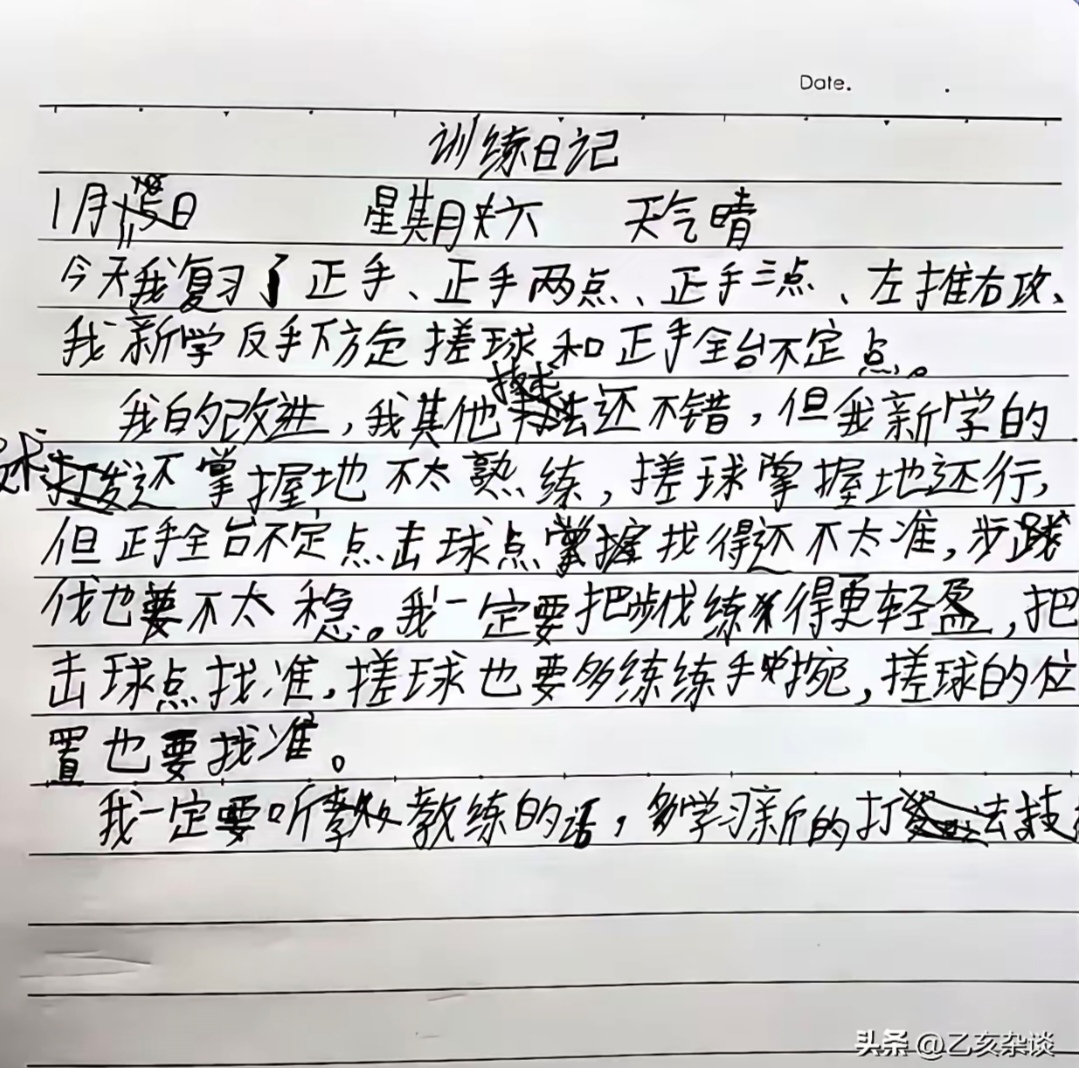 Date.
训练日记
1月11日 星期六 天气晴
今天我复习了正手、正手两点、正手三点、左推右攻、
我新学反手下方定搓球和正手全台不定点。
我自的改进,我其他技术还不错,但我新学的
还掌握地不太熟练,搓球掌握地还行,
但正手全台不定点击球点找得还不太准,步
伐也不太稳。我一定要把步伐练得更轻盈,把
击球点找准,搓球也要多练练手挽,搓球的位
置也要找准。
我一定要听教练的话,多学习新的打法技
头条 @乙亥杂谈